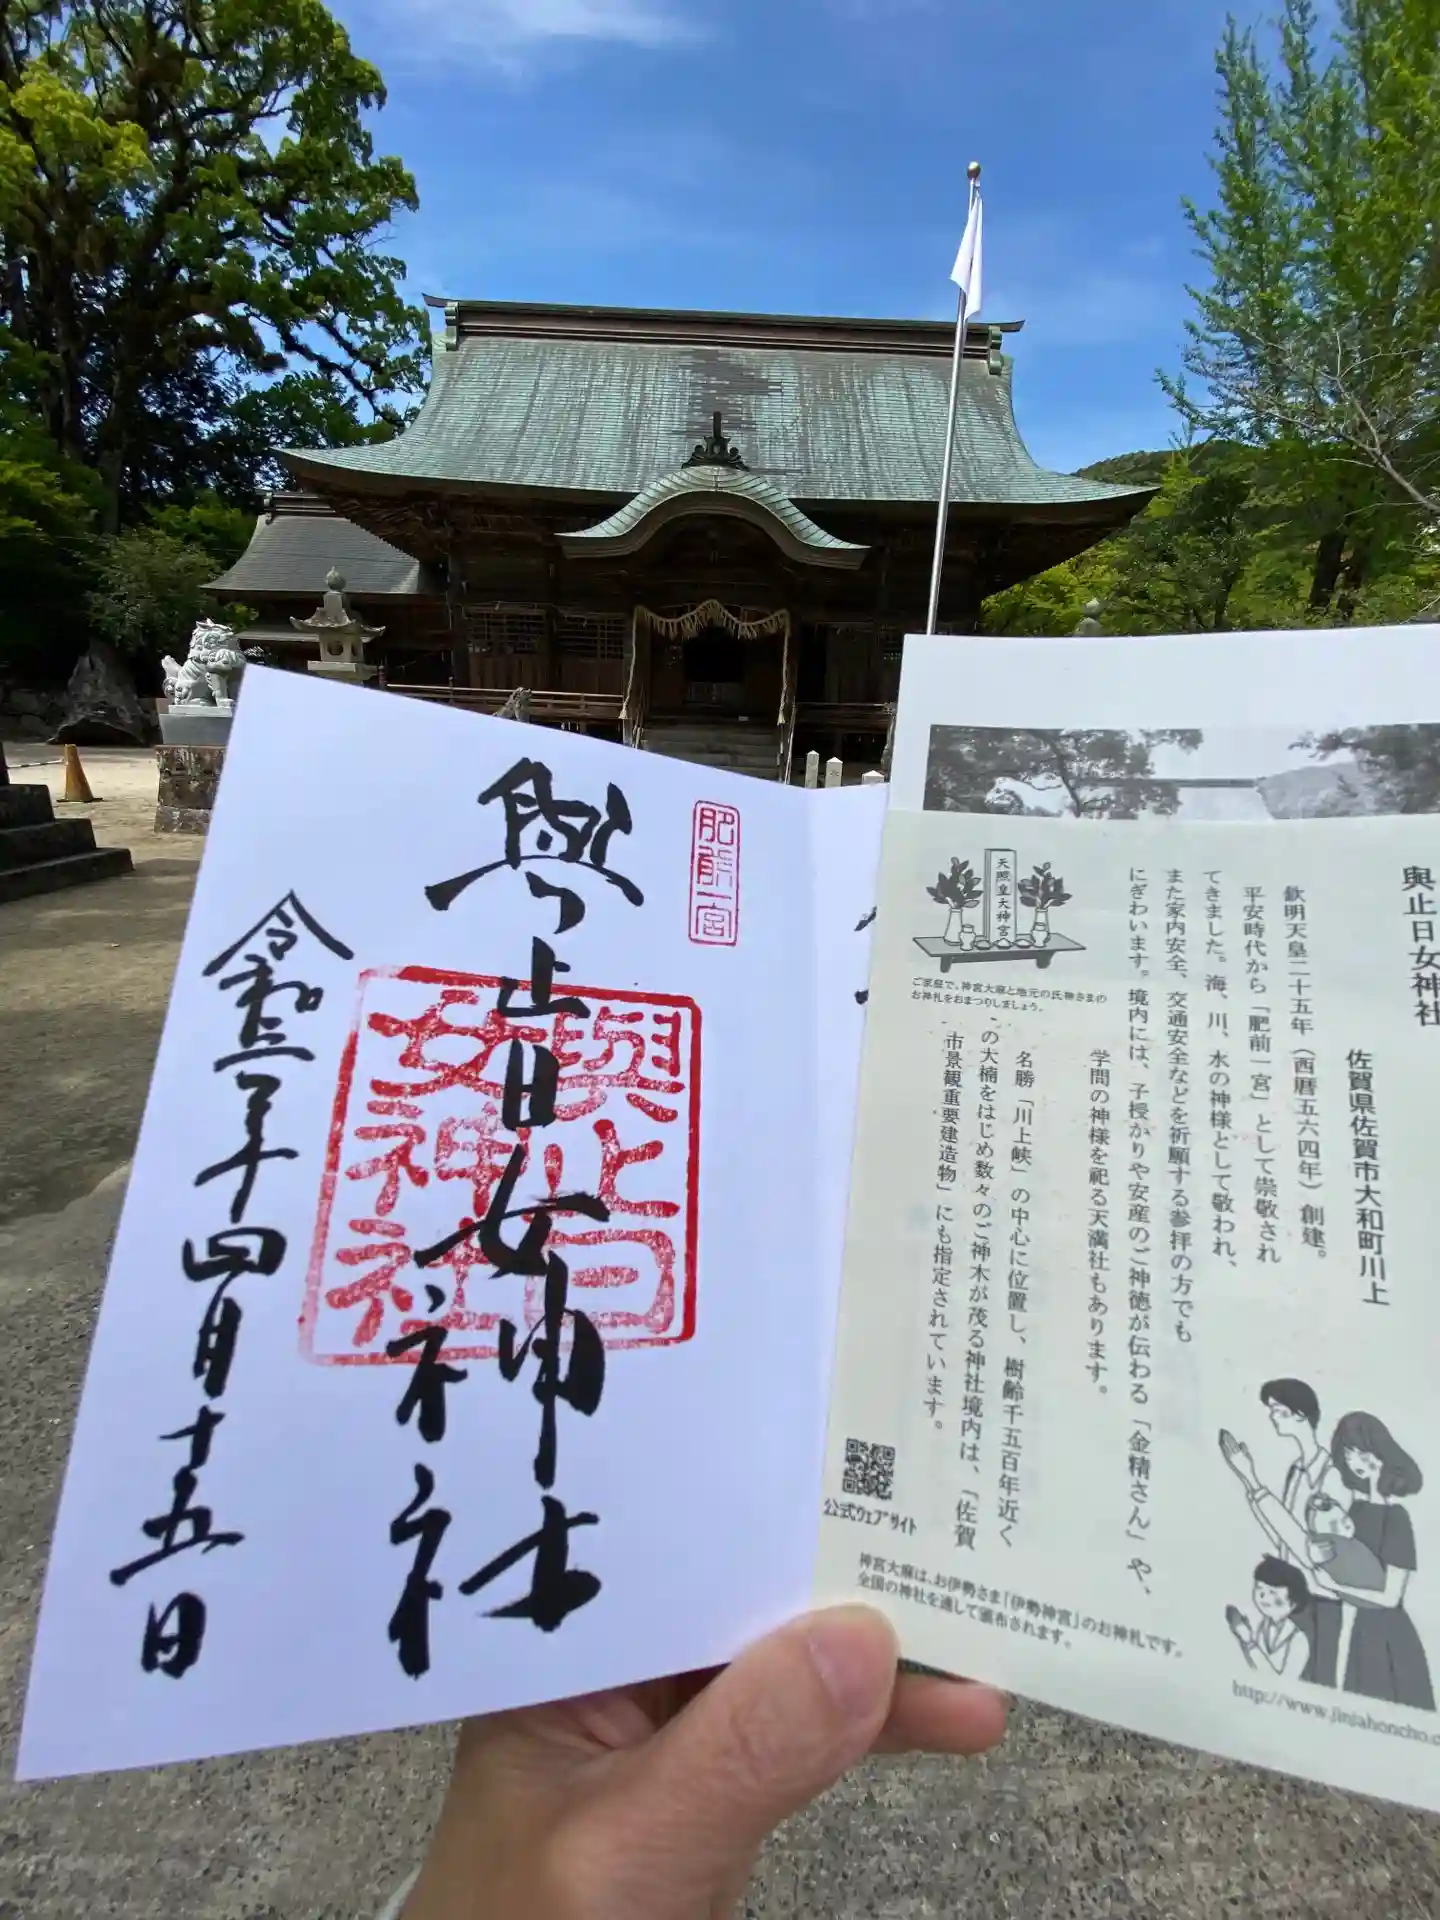 肥前一宮
與止日女神社
與止日
女神社
令和三年十四月十五日
與止日女神社
佐賀県佐賀市大和町川上
欽明天皇二十五年（西暦五六四年）創建。
平安時代から「肥前一宮」として崇敬され
てきました。海、川、水の神様として敬われ、
また家内安全、交通安全などを祈願する参拝の方でも
にぎわいます。境内には、子授かりや安産のご神徳が伝わる「金精さん」や、
学問の神様を祀る天満社もあります。
名勝「川上峡」の中心に位置し、樹齢千五百年近く
の大楠をはじめ数々のご神木が茂る神社境内は、「佐賀
市景観重要建造物」にも指定されています。
天照皇大神宮
ご家庭で、神宮大麻と地元の氏神さまの
お神札をおまつりしましょう。
公式ウェブサイト
神宮大麻は、お伊勢さま「伊勢神宮」のお神札です。
全国の神社を通して頒布されます。
http://www.jinjahoncho.c